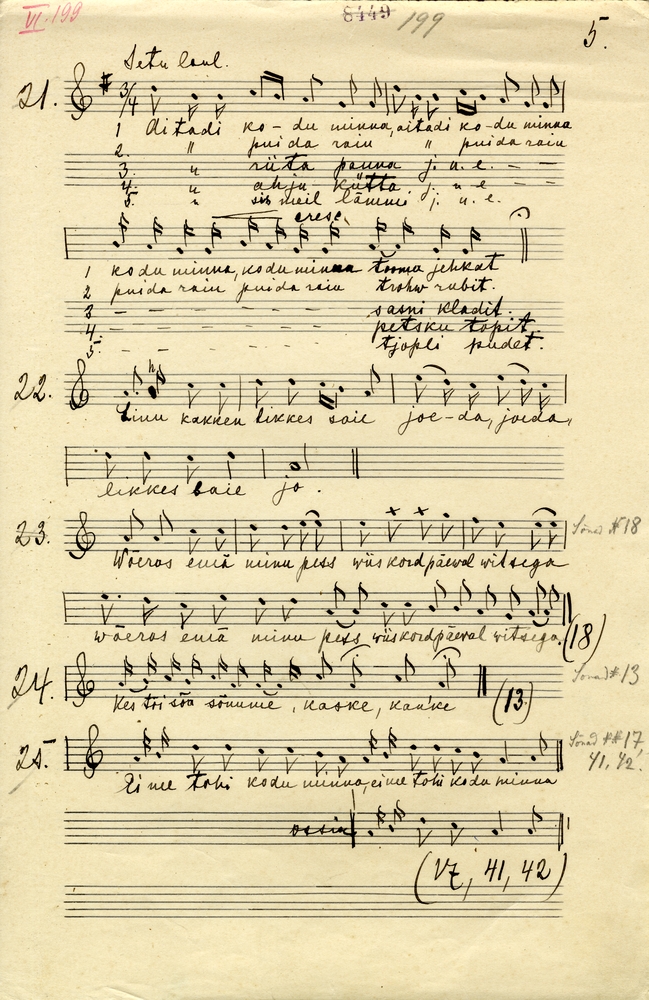 VI. 199
8449 199
5.
Setu laul.
21.
3/4
1 Oitadi ko-du minna, aitadi ko-du minna
2. " puida raiu " puida raiu
3. " riita panna j. n. e. - -
4. " ahju kütta. j. n. e - -
5. " siis meil lämmi j. n. e.
cresc.
1 kodu minna, kodu minna tooma jehkat
2 puida raiu puida raiu trohw rubit.
3 - - - - - - sasni kladit.
4 - - - - - - petsku topit.
5. - - - - - - tjopli pudet.
22.
Linu kakken likkes saie joe-da, joeda,
likkes saie jo.
23.
Sõnad # 18
Wõeras emä minu pess wiiskord päewal witsega
wõeras emä minu pess wiiskord päewal witsega.
(18)
24.
Sõnad # 13
Kes tõi sõa sõnume, kaske, kan'ke
(13)
25.
Sõnad ## 17,
41, 42.
Ei me tohi kodu minna, ei me tohi kodu minna
ossia
(17, 41, 42)